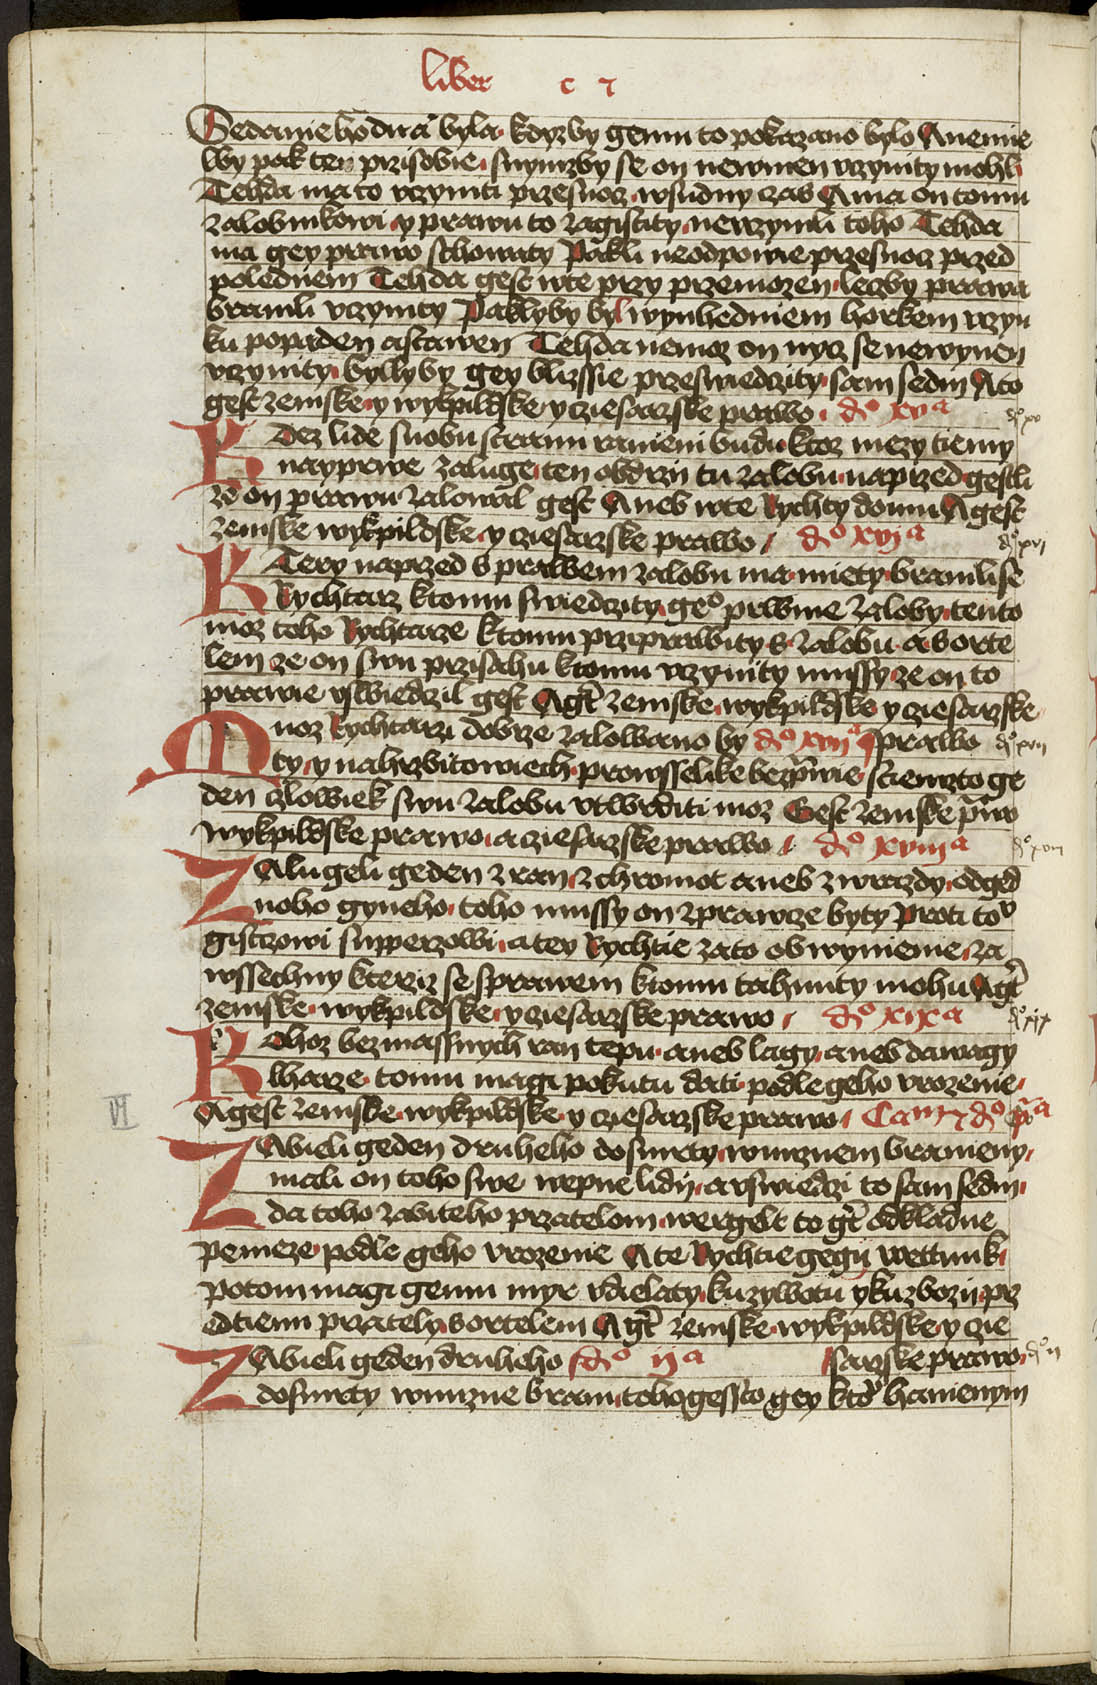 liber c 7
Sedanie hodna byla kdyzby gemu to pokazano bylo A nemie
lby pak ten przi sobie swymzby se on newinen vczynity mohl
Tehda ma to vczyniti przes noc w sudny czas A ma on tomu
zalobnikowi y prawu to zagistity neuczynili toho Tehda
ma gey prawo schowaty Pakli neodpowie przes noc przed
polednem Tehda gest w te przy przemozen leczby prawa
branili vczynity Pakliby byl w ynhedniem horkem vczyn
ku popaden a stawen Tehda nemoz on nycz se newynen
vczynity byllyby gey blizssie przeswiedczity sam sedm A to
gest zemske y wykpildske y cziesarzske prawo dº xvª
Kdez lide s nobu stranu ranieni budu ktoz mezy tiemy
nayprwe zaluge ten obdrzy tu zalobu naprzed gestli
ze on prawu zalowal gest A neb w te Rychty domu A gest
zemske wykpildske y cziesarzske prawo dº xvjª
dº xvj
Ktery naprzed s prawem zalobu ma miety branilise
Rychtarz ktomu swiedczity geº prwnie zaloby tento
moz toho Rychtarze ktomu przyprawity s zalobu a s orte
lem ze on swu przisahu ktomu vczynity mussy ze on to
prawie vswiedczil gest A gt zemske wykpildske y cziesarzske
Muoz Rychtarzi dobrze zalowano by dº xvijº prawo
ty y na hrzbitowiech prowsselike bezprawie sciemzto ge
den czlowiek swu zalobu vtwrditi moz Gest zemske prawo
wykpildske prawo a cziesarzske prawo dº xviijª
dº xviij
Zalugeli geden z ran z chromot aneb z wrazdy od ged
noho gyneho toho mussy on zprawcze byty Proti to
gistczowi supperzowi a tey Rychtie za to obwynienie za
wssechny kterziz se s prawem ktomu tahnuty mohu A gt
zemske wykpildske y cziesarzske prawo dº xixª
dº xix
Kohoz bez massnych ran tepu aneb lagy aneb dawagy
lharze tomu magi pokutu dati podle geho vrozenie
A gest zemske wykpildske y cziesarzske prawo Cam 7 dº pª
VI
Zabieli geden druheho do smrty w nucznem branieny
mali on toho swe wepne lidij a vswiedczi to sam sedm
da toho zabiteho przatelom wergelt to gt odkladne
penieze podle geho vrozenie A te Rychtie gegij wettunk
potom magi gemu myr vdielaty k zywotu y k zbozij prz
ed tiemi prately s ortelem A gt zemske wykpildske y czie
Zabieli geden druheho dº ijª sarzske prawo dº ij
do smrty w nuczne brani toho gessto gey ktº hanienym